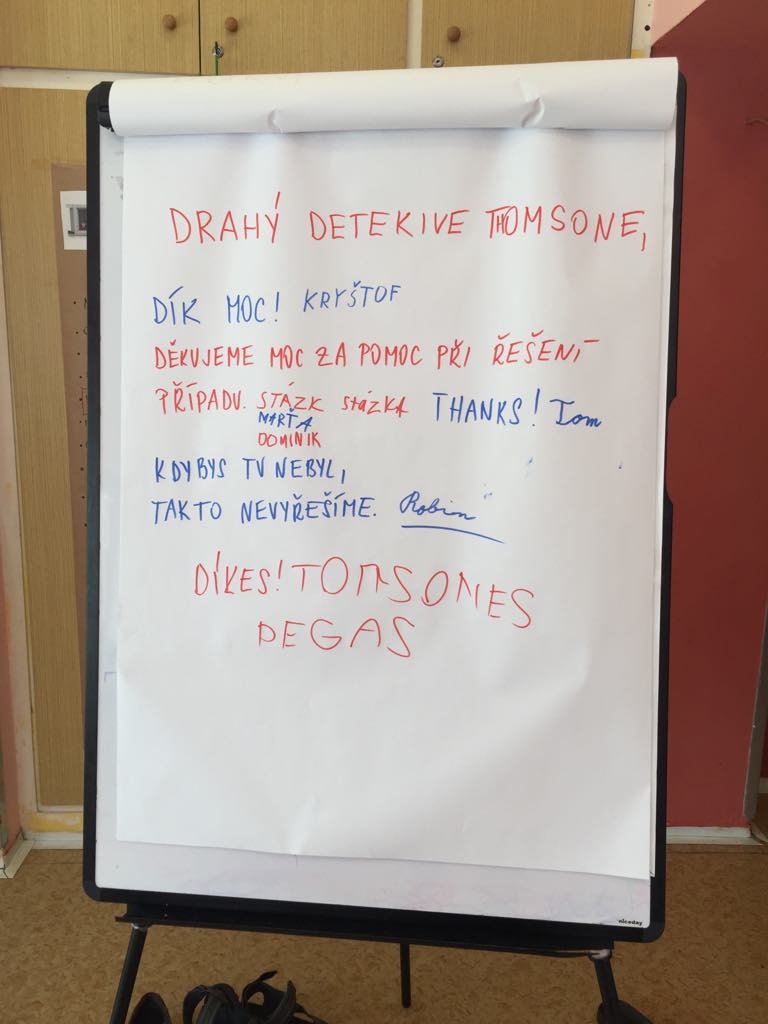 DRAHÝ DETEKIVE THOMSONE,
DÍK MOC! KRYŠTOF
DĚKUJEME MOC ZA POMOC PŘI ŘEŠENÍ
PŘÍPADU. STÁZK stázKA THANKS! Tom
MARŤA
DOMINIK
KDYBYS TV NEBYL,
TAKTO NEVYŘEŠÍME. Robin
DÍKES! TOMSONES
PEGAS
niceday